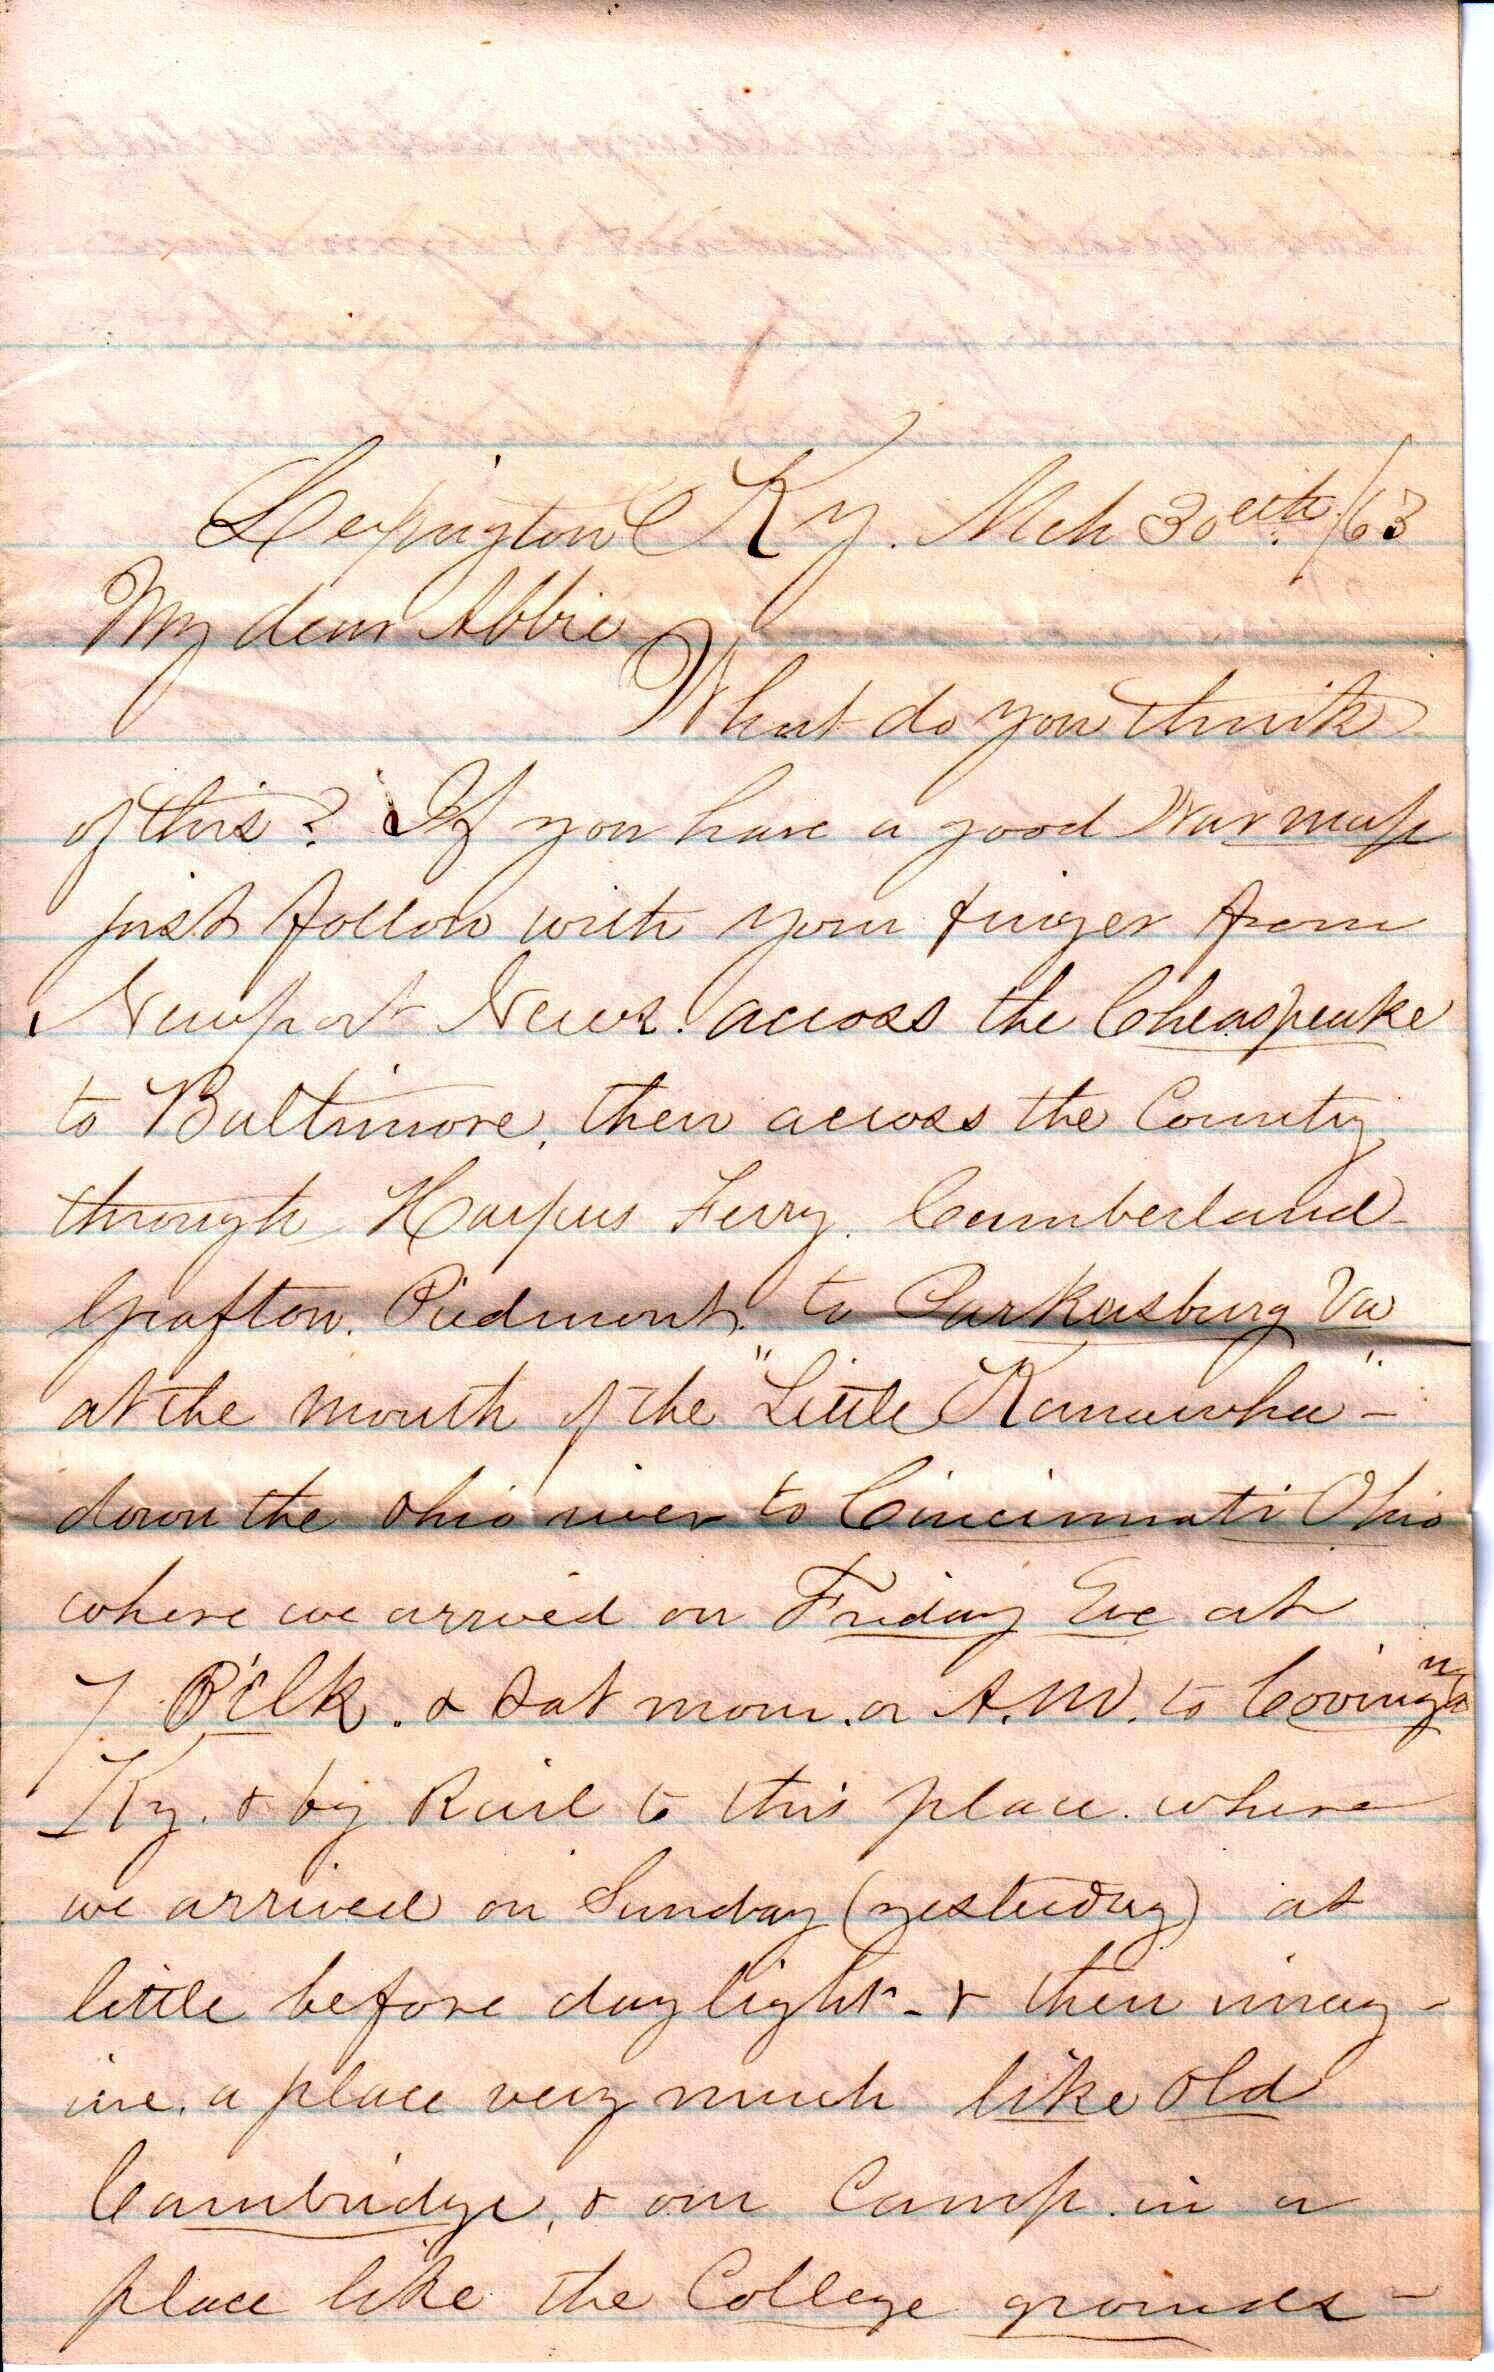 Lexington Ky. Mch 30eth /63
My dear Abbie
What do you think
of this? If you have a good War map
just follow with your finger from
Newport News. across the Cheaspeake
to Baltimore, then across the County
through Harpers Ferry. Cumberland-
Grafton. Piedmont. to Parkersburg Va
at the mouth of the "Little Kanawha" -
down the Ohio river to Cincinnati Ohio
where we arrived on Friday Eve at
7 O'Clk. & Sat morn. or A.M. to Covington
Ky. & by Rail to this place. where
we arrived on Sunday (yesterday) at
little before daylight - & then imag-
ine. a place very much like Old
Cambridge, & our Camp in a
place like the College grounds -